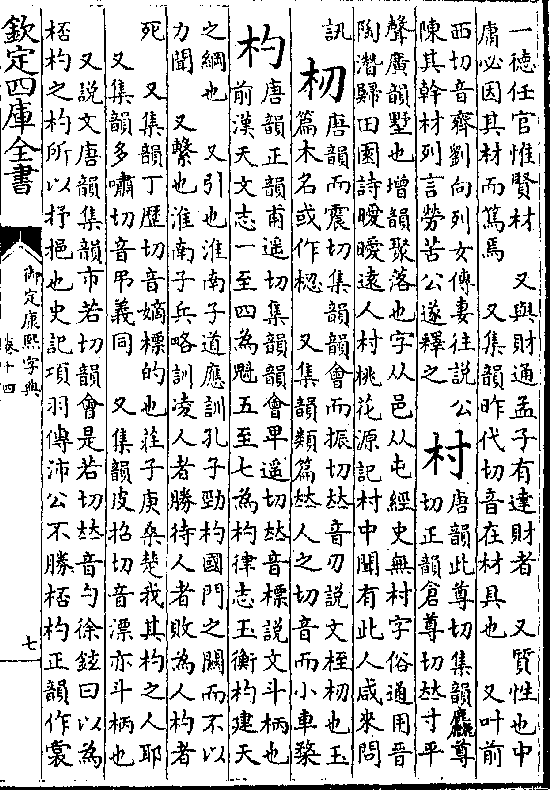 一徳任官惟賢材 又與財通孟子有達財者 又質性也中
庸必因其材而篤焉 又集韻昨代切音在材具也 又叶前
西切音齊劉向列女傳妻往說公
陳其幹材列言勞苦公遂釋之 村 唐韻此尊切集韻麤尊
切正韻倉尊切𠀤寸平
聲廣韻墅也增韻聚落也字从邑从屯經史無村字俗通用晉
陶潛歸田園詩曖曖遠人村桃花源記村中聞有此人咸來問
訊 杒 唐韻而震切集韻韻會而振切𠀤音刃說文桎杒也玉
篇木名或作梕 又集韻類篇𠀤人之切音而小車棃
杓 唐韻正韻甫遥切集韻韻會卑遥切𠀤音標說文斗柄也
前漢天文志一至四為魁五至七為杓律志玉衡杓建天
之綱也 又引也淮南子道應訓孔子勁杓國門之關而不以
力聞 又繫也淮南子兵略訓凌人者勝待人者敗為人杓者
死 又集韻丁歴切音嫡標的也莊子庚桑楚我其杓之人耶
又集韻多嘯切音弔義同 又集韻皮招切音漂亦斗柄也
又說文唐韻集韻市若切韻會是若切𠀤音勺徐鉉曰以為
桮杓之杓所以抒挹也史記項羽傳沛公不勝桮杓正韻作裳
欽定四庫全書
御定康熙字典
卷十四
七